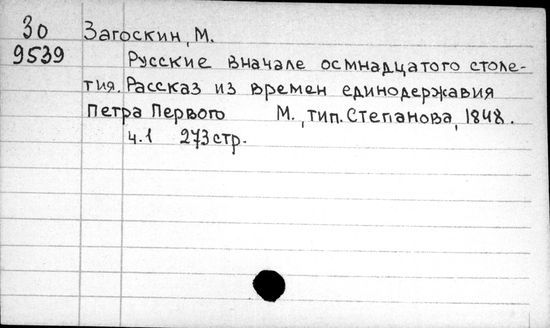 30 Загоскин, М.
9539 Русские вначале осмнадцатого столе-
тия. Рассказ из времен единодержавия
Петра Первого М., тип. Степанова, 1848.
ч.1 273 стр.